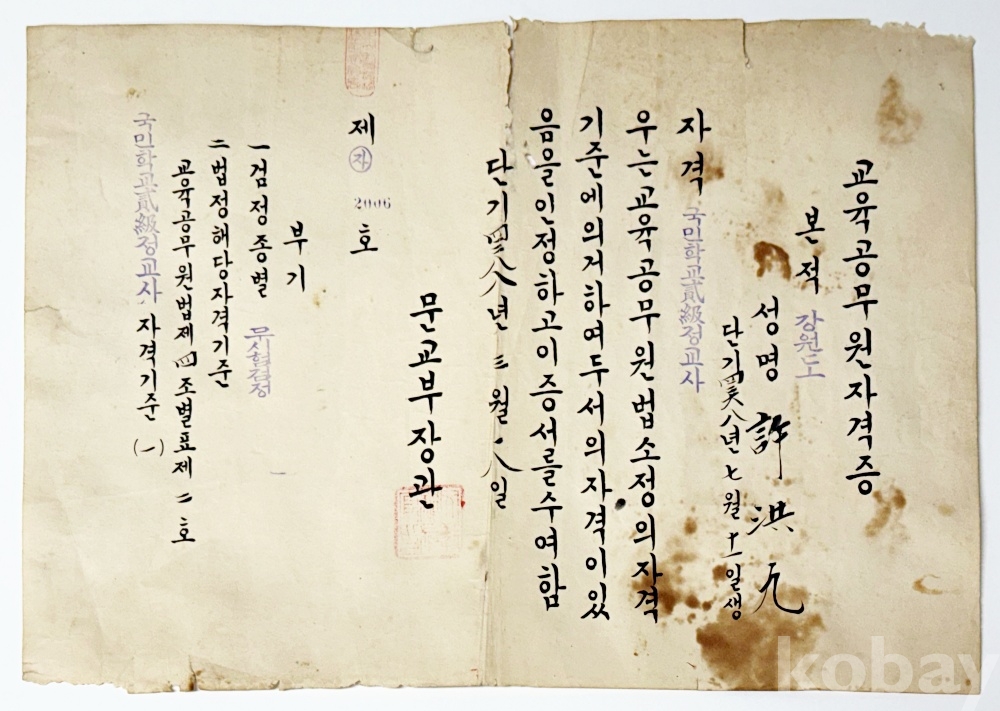 교육공무원자격증
본적 강원도
성명 許洪九
단기四六八년七월十一일생
자격 국민학교貳級정교사
우는교육공무원법소정의자격
기준에의거하여두서의자격이있
음을인정하고이증서를수여함
단기四八八년三월一八일
문교부장관
제 자 2006 호
부기
一 검정종별 무시험검정
二 법정해당자격기준
교육공무원법제四조별표제二호
국민학교貳級정교사 자격기준 (一)
kobay